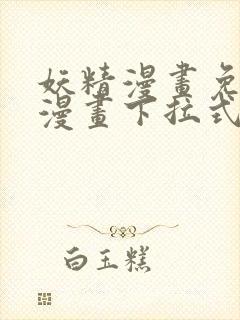 妖精漫畫免
漫畫下拉式
白玉糕